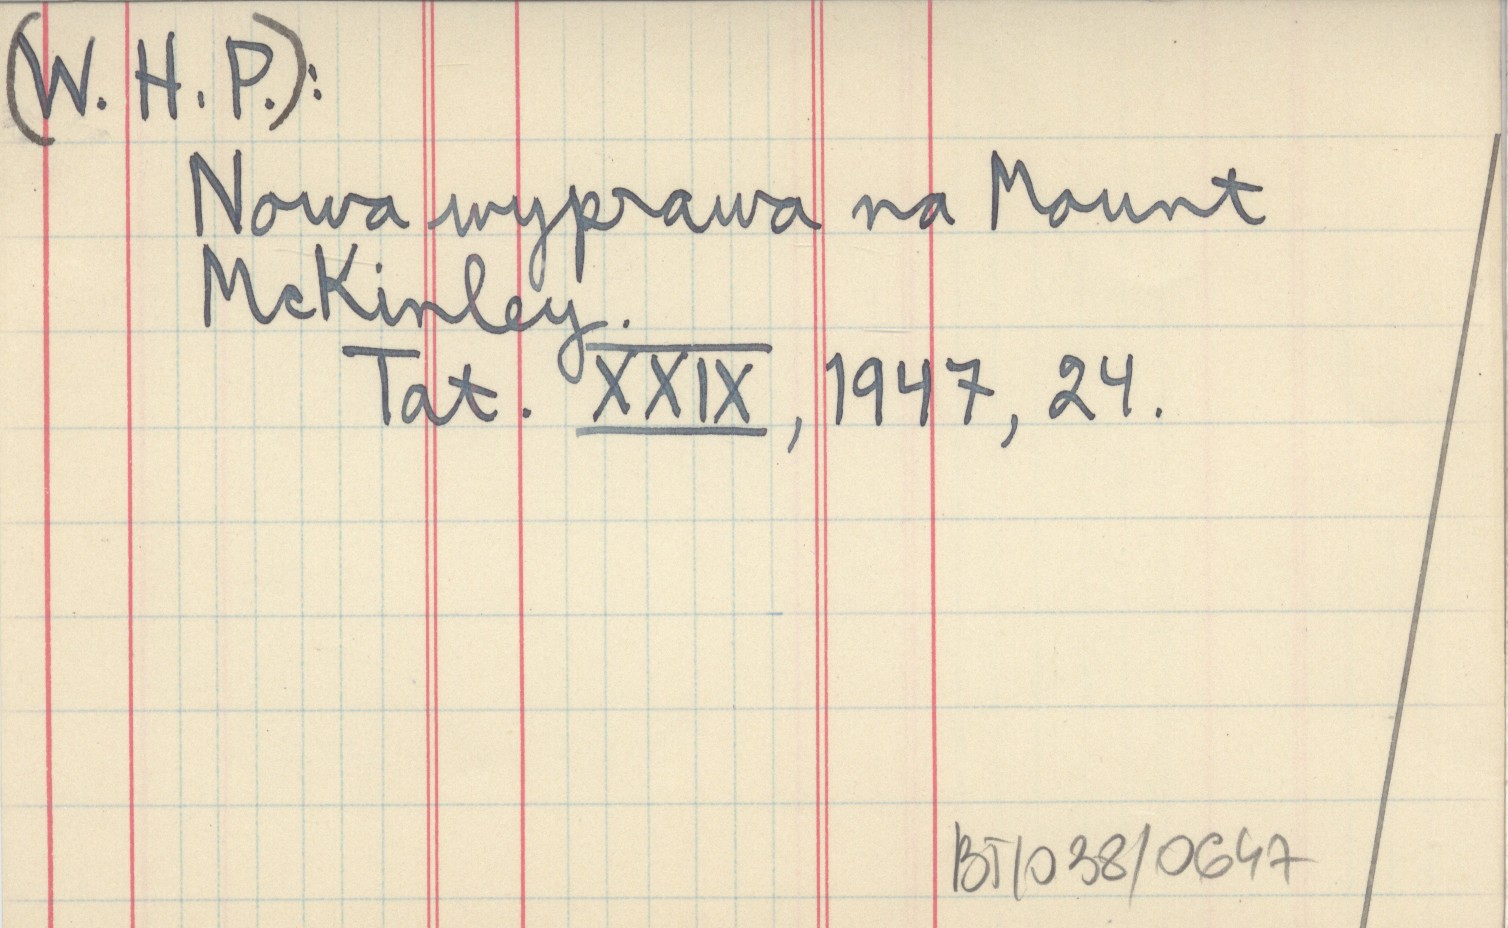 (W. H. P.):
Nowa wyprawa na Mount
McKinley.
Tat. XXIX, 1947, 24.
BT/038/0647